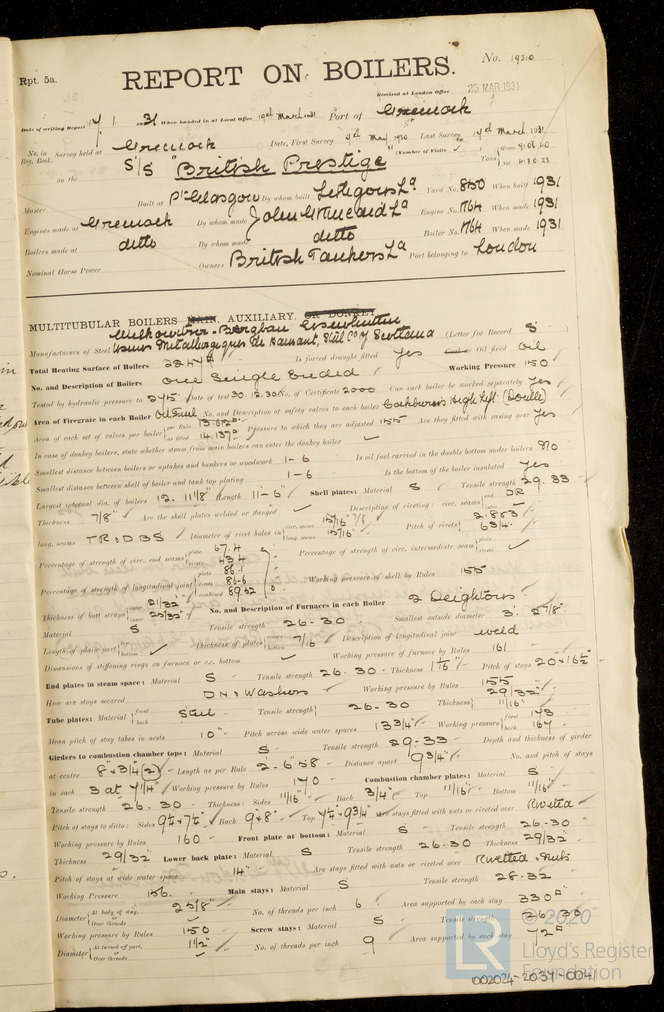 Rpt. 5a.
No. 19310
REPORT ON BOILERS.
Received at London Office 25 MAR 1931
Date of writing Report 1931 When handed in at Local Office 19th March 1931 Port of Greenock
No. in Reg. Book. Survey held at Greenock Date, First Survey 9th May 1930 Last Survey 17th March 1931
on the S/S "British Prestige (Number of Visits ) Gross Tons Net
Master Built at Pt Glasgow By whom built Lithgows Ld Yard No. 850 When built 1931
Engines made at Greenock By whom made John G Kincaid Ld Engine No. K764 When made 1931
Boilers made at ditto By whom made ditto Boiler No. K764 When made 1931
Nominal Horse Power Owners British Tankers Ld Port belonging to London
MULTITUBULAR BOILERS MAIN, AUXILIARY, OR DONKEY
Manufacturers of Steel Usines Metallurgiques de Hainaut, Steel Coy of Scotland (Letter for Record S )
Total Heating Surface of Boilers Is forced draught fitted Yes Coal or Oil fired Oil
No. and Description of Boilers One Single Ended Working Pressure 150
Tested by hydraulic pressure to 275 Date of test 30.12.30 No. of Certificate 2000 Can each boiler be worked separately Yes
Area of Firegrate in each Boiler Oil Fuel No. and Description of safety valves to each boiler Cockburns High Lift (Double)
Area of each set of valves per boiler per Rule as fitted Pressure to which they are adjusted 155 Are they fitted with easing gear Yes
In case of donkey boilers, state whether steam from main boilers can enter the donkey boiler ✓
Smallest distance between boilers or uptakes and bunkers or woodwork 1-6 Is oil fuel carried in the double bottom under boilers No
Smallest distance between shell of boiler and tank top plating 1-6 Is the bottom of the boiler insulated Yes
Largest internal dia. of boilers 12. 11 1/8" Length 11-6" Shell plates: Material S Tensile strength 29.33
Thickness 7/8" Are the shell plates welded or flanged ✓ Description of riveting: circ. seams end DR inter. ✓
long. seams TR.DBS Diameter of rivet holes in circ. seams long. seams 15/16" Pitch of rivets 2.883 6 3/4"
Percentage of strength of circ. end seams plate 67.4 rivets 43.4 Percentage of strength of circ. intermediate seam plate rivets ✓
Percentage of strength of longitudinal joint plate 86.1 rivets 86.6 combined 89.32 Working pressure of shell by Rules 155
Thickness of butt straps outer 21/32" inner 25/32" No. and Description of Furnaces in each Boiler 2 Deightons
Material S Tensile strength 26-30 Smallest outside diameter 3' 2 7/8"
Length of plain part top bottom ✓ Thickness of plates crown bottom 7/16 Description of longitudinal joint weld
Dimensions of stiffening rings on furnace or c.c. bottom ✓ Working pressure of furnace by Rules 161
End plates in steam space: Material S Tensile strength 26.30 Thickness 1 1/16" Pitch of stays 20" x 16 1/2"
How are stays secured DN & Washers Working pressure by Rules 155
Tube plates: Material front back Steel Tensile strength 26-30 Thickness 29/32" 11/16"
Mean pitch of stay tubes in nests 10" Pitch across wide water spaces 13 3/4" Working pressure front 173 back 167
Girders to combustion chamber tops: Material S Tensile strength 29-33 Depth and thickness of girder
at centre 8" x 3/4 (2) Length as per Rule 2-6"58 Distance apart 9 3/4" No. and pitch of stays
in each 3 at 7 1/4" Working pressure by Rules 170 Combustion chamber plates: Material S
Tensile strength 26.30 Thickness: Sides 11/16" Back 3/4" Top 11/16" Bottom 11/16"
Pitch of stays to ditto: Sides 9 1/2" x 7 1/2" Back 9" x 8" Top 7 1/4" x 9 3/4" Are stays fitted with nuts or riveted over Rivetted
Working pressure by Rules 160 Front plate at bottom: Material S Tensile strength 26-30
Thickness 29/32 Lower back plate: Material S Tensile strength 26.30 Thickness 29/32"
Pitch of stays at wide water space 14" Are stays fitted with nuts or riveted over Rivetted. Nuts
Working Pressure 156. Main stays: Material S Tensile strength 28-32
Diameter At body of stay, or Over threads 2 5/8" No. of threads per inch 6 Area supported by each stay 330"
Working pressure by Rules 150 Screw stays: Material S Tensile strength 26.30
Diameter At turned off part, or Over threads 1 1/2" No. of threads per inch 9 Area supported by each stay 72"
© 2020
Lloyd's Register
Foundation
002024-2037-0041